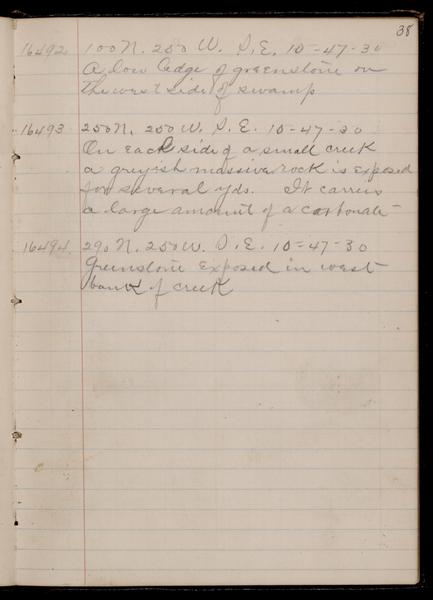 38
16492 100 N. 250 W. S.E. 10-47-30
A low ledge of greenstone on
the west side of swamp
16493 250 N. 250 W. S.E. 10-47-30
On each side of a small creek
a greyish massive rock is exposed
for several yds. It carries
a large amount of a carbonate
16494 290 N. 250 W. S.E. 10-47-30
Greenstone exposed in west
bank of creek